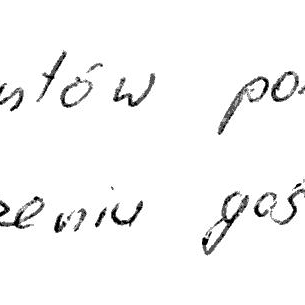 ntów po
zeniu goś